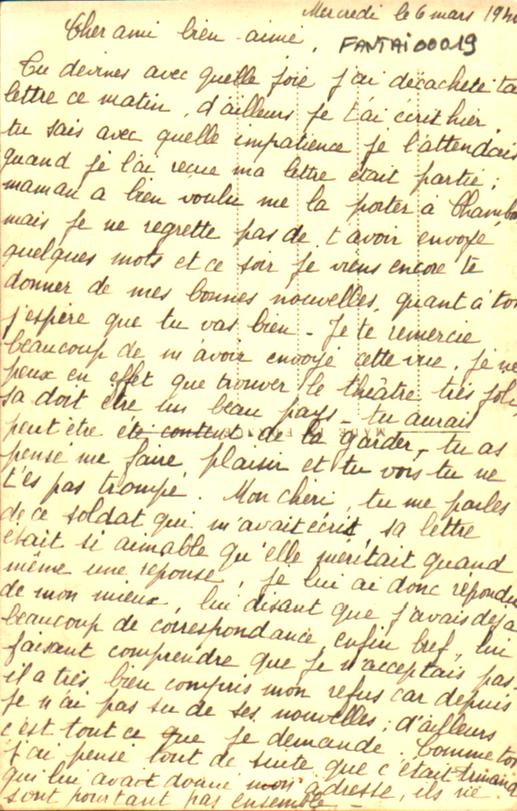 Mercredi le 6 mars 1940
Cher ami bien-aimé,
FANTAI00019
Tu devines avec quelle joie j'ai décacheté ta
lettre ce matin, d'ailleurs je t'ai écrit hier,
tu sais avec quelle impatience je l'attendais
quand je l'ai reçue ma lettre était partie ;
maman a bien voulu me la porter à
mais je ne regrette pas de t'avoir envoyé
quelques mots et ce soir je viens encore te
donner de mes bonnes nouvelles, quant à toi
j'espère que tu vas bien - Je te remercie
beaucoup de m'avoir envoyé cette vue, je ne
peux en effet que trouver le théâtre très joli,
sa doit être un beau pays - tu aurais
peut être été content de la garder, tu as
pensé me faire plaisir et tu vois tu ne
t'es pas trompé. Mon chéri, tu me parles
de ce soldat qui m'avait écrit, sa lettre
était si aimable qu'elle méritait quand
même une réponse, je lui ai donc répondu
de mon mieux, lui disant que j'avais déjà
beaucoup de correspondance enfin bref, lui
faisant comprendre que je n'acceptais pas.
il a très bien compris mon refus car depuis
je n'ai pas su de ses nouvelles ; d'ailleurs
c'est tout ce que je demande. Comme toi
j'ai pensé tout de suite que c'était
qui lui avait donné mon adresse, ils ne
sont pourtant pas ensemble -